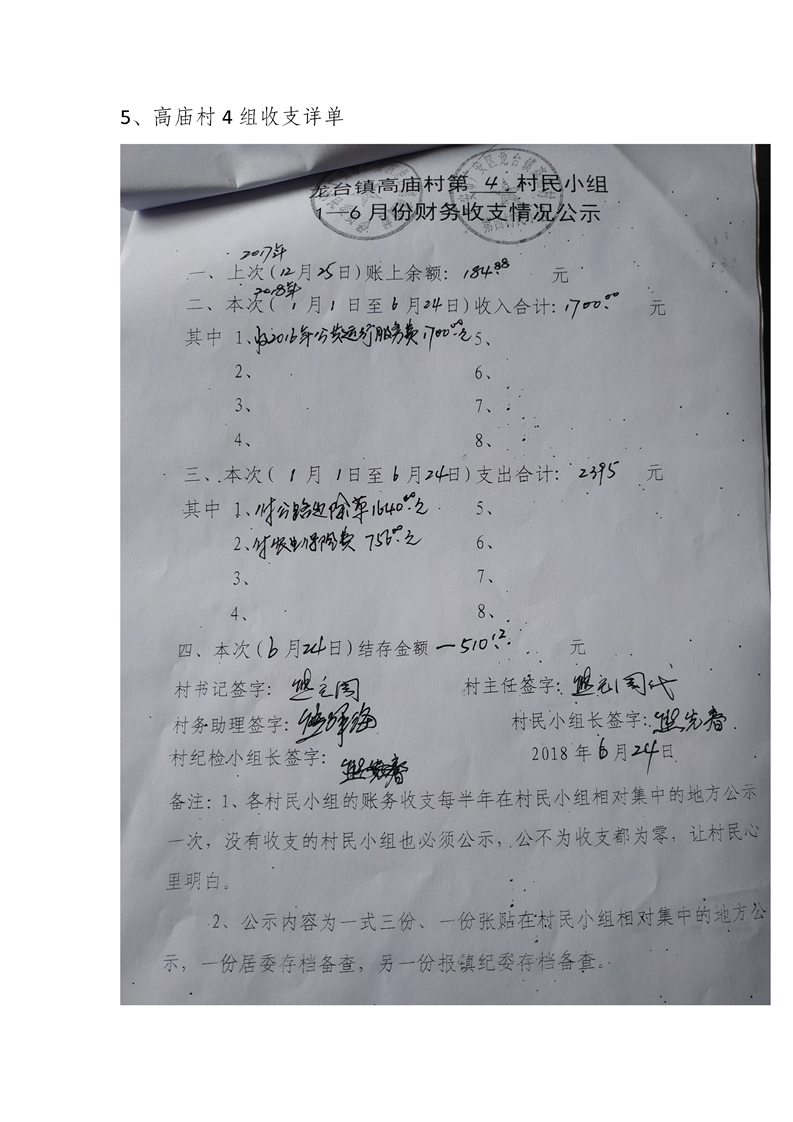 5、高庙村4组收支详单
龙台镇高庙村第 4 村民小组
1—6月份财务收支情况公示
2017年
一、上次(12月25日)账上余额：184.88 元
2018年
二、本次( 1月1日至6月24日)收入合计：1700.00 元
其中 1、收2016年公共运行服务费1700.00元 5、
2、 6、
3、 7、
4、 8、
三、本次( 1月1日至6月24日)支出合计： 2395 元
其中 1、付公路边除草1640.00元 5、
2、付农业保险费 756.00元 6、
3、 7、
4、 8、
四、本次(6月24日)结存金额 —510.12 元
村书记签字： 村主任签字：
村务助理签字： 村民小组长签字：
村纪检小组长签字： 2018年6月24日
备注：1、各村民小组的账务收支每半年在村民小组相对集中的地方公示
一次，没有收支的村民小组也必须公示，公不为收支都为零，让村民心
里明白。
2、公示内容为一式三份、一份张贴在村民小组相对集中的地方公
示，一份居委存档备查，另一份报镇纪委存档备查。